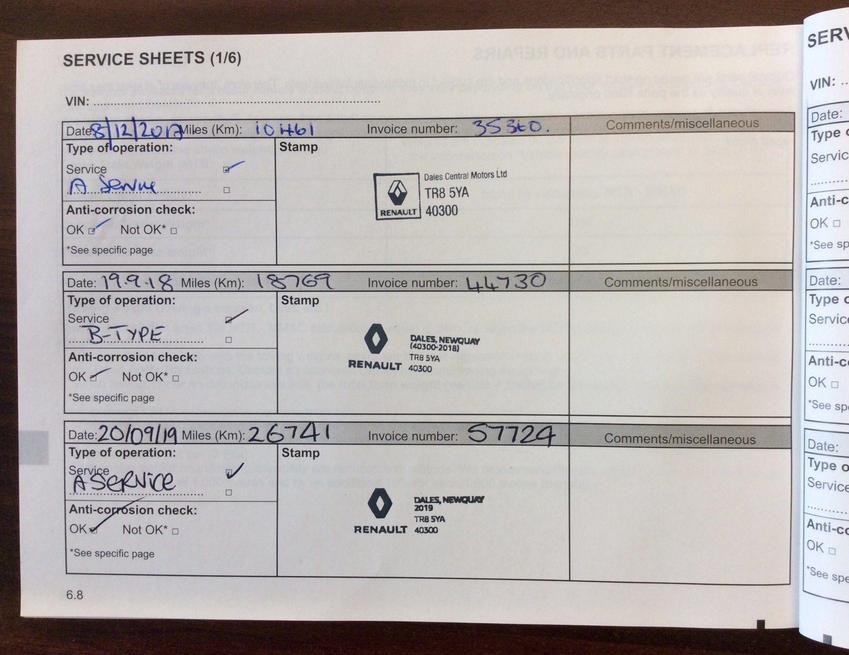 SERVICE SHEETS (1/6)
VIN:
Date: 8/12/2017 Miles (Km): 10461 Invoice number: 35340. Comments/miscellaneous
Type of operation: Stamp
Service
A Service
Dales Central Motors Ltd
TR8 5YA
RENAULT 40300
Anti-corrosion check:
OK Not OK*
*See specific page
Date: 19.9.18 Miles (Km): 18769 Invoice number: 44730 Comments/miscellaneous
Type of operation: Stamp
Service
B-TYPE
DALES, NEWQUAY
(40300-2018)
TR8 5YA
RENAULT 40300
Anti-corrosion check:
OK Not OK*
*See specific page
Date: 20/09/19 Miles (Km): 26741 Invoice number: 57724 Comments/miscellaneous
Type of operation: Stamp
Service
A SERVICE
DALES, NEWQUAY
2019
TR8 5YA
RENAULT 40300
Anti-corrosion check:
OK Not OK*
*See specific page
6.8
SERV
VIN:
Date:
Type o
Servic
Anti-c
OK
*See sp
Date:
Type o
Servic
Anti-c
OK
*See sp
Date:
Type o
Service
Anti-co
OK
*See spe